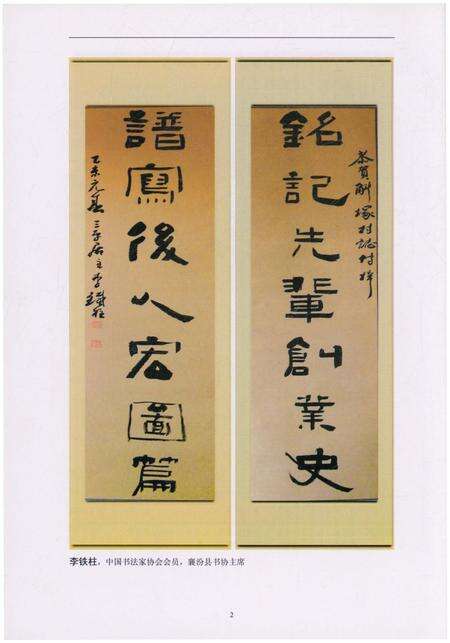 恭賀塚村誌付梓
銘記先輩創業史
譜寫後人宏圖篇
乙未元居主李鐵柱
李铁柱，中国书法家协会会员，襄汾县书协主席
2